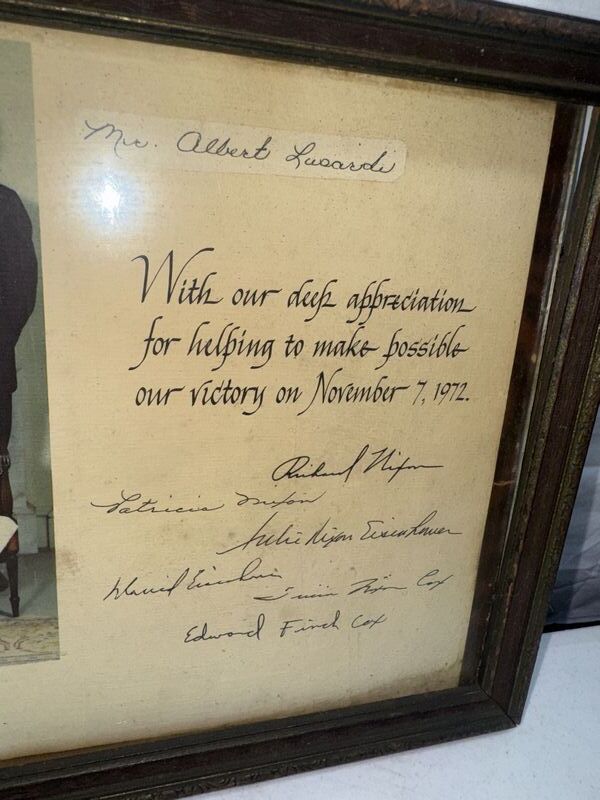 Mr. Albert Lusardi
With our deep appreciation
for helping to make possible
our victory on November 7, 1972.
Richard Nixon
Patricia Nixon
Julie Nixon Eisenhower
David Eisenhower
Tricia Nixon Cox
Edward Finch Cox